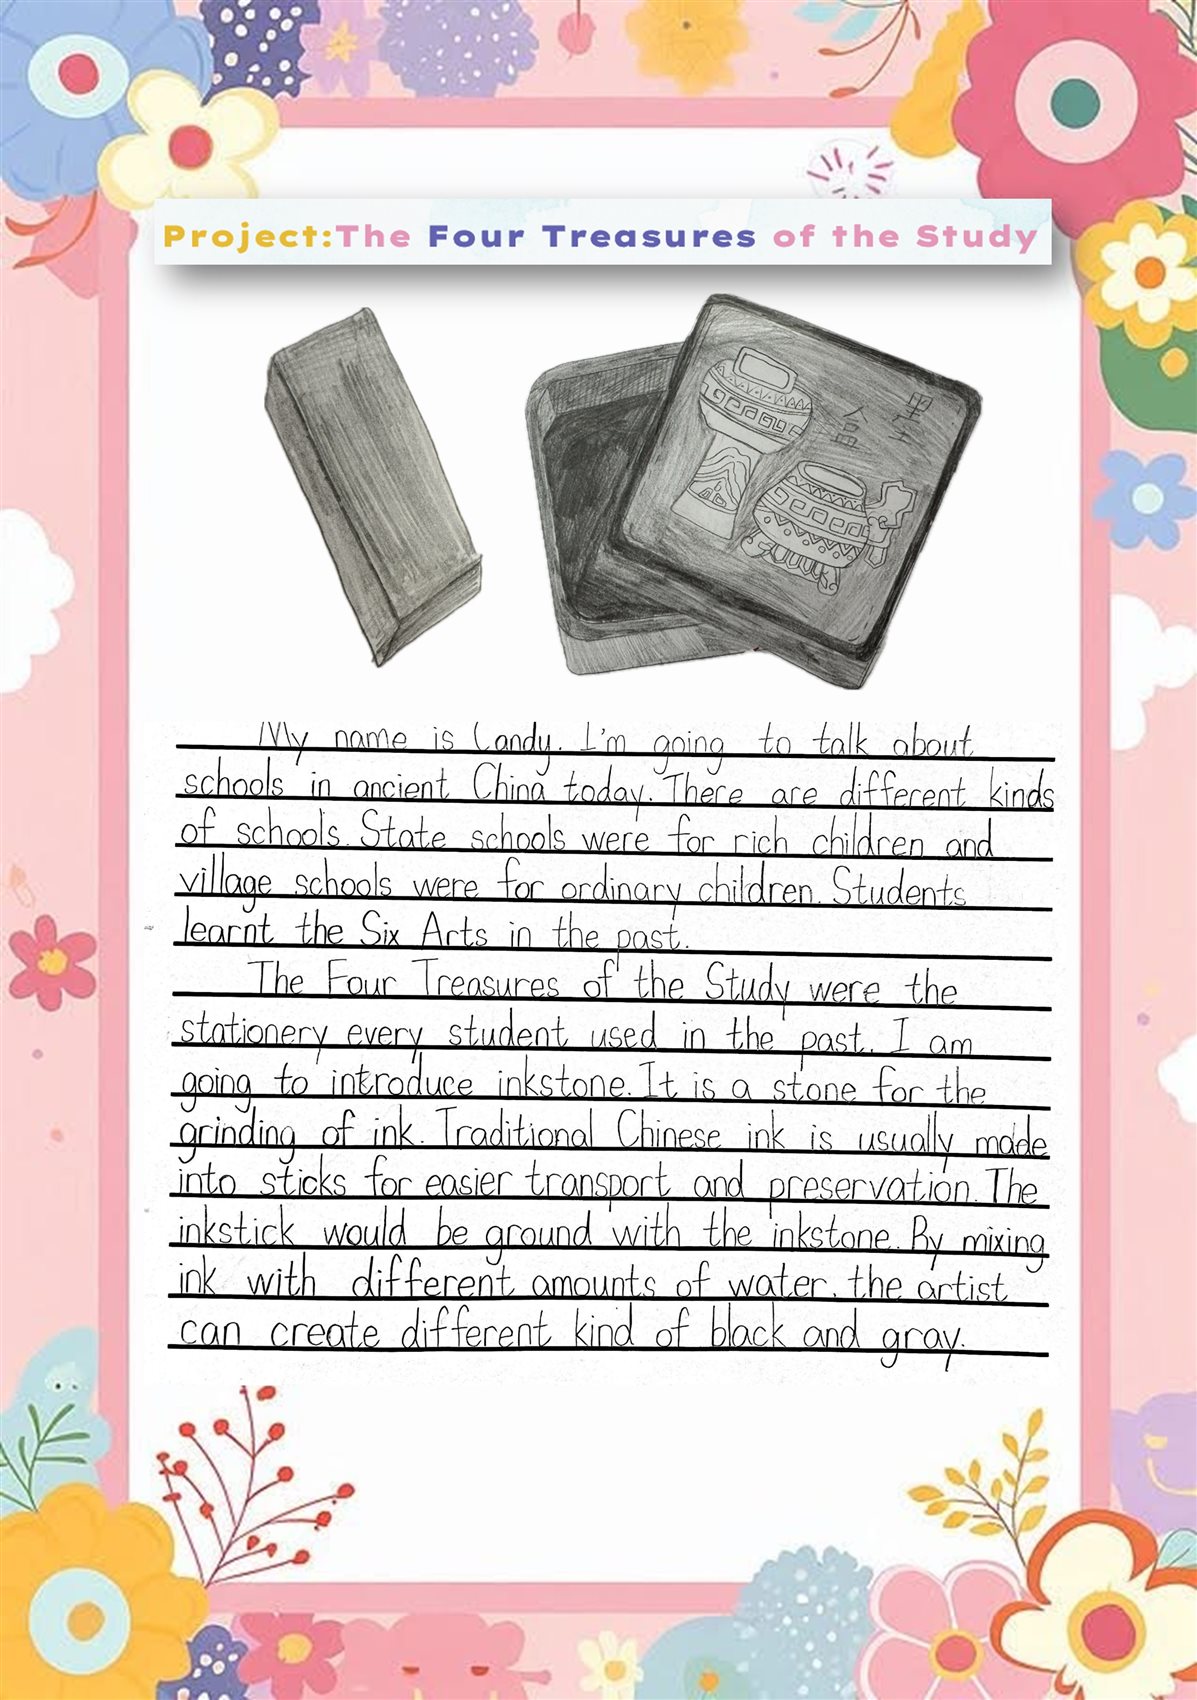 Project:The Four Treasures of the Study
墨
盒
My name is Candy. I'm going to talk about
schools in ancient China today. There are different kinds
of schools. State schools were for rich children and
village schools were for ordinary children. Students
learnt the Six Arts in the past.
The Four Treasures of the Study were the
stationery every student used in the past. I am
going to introduce inkstone. It is a stone for the
grinding of ink. Traditional Chinese ink is usually made
into sticks for easier transport and preservation. The
inkstick would be ground with the inkstone. By mixing
ink with different amounts of water, the artist
can create different kind of black and gray.